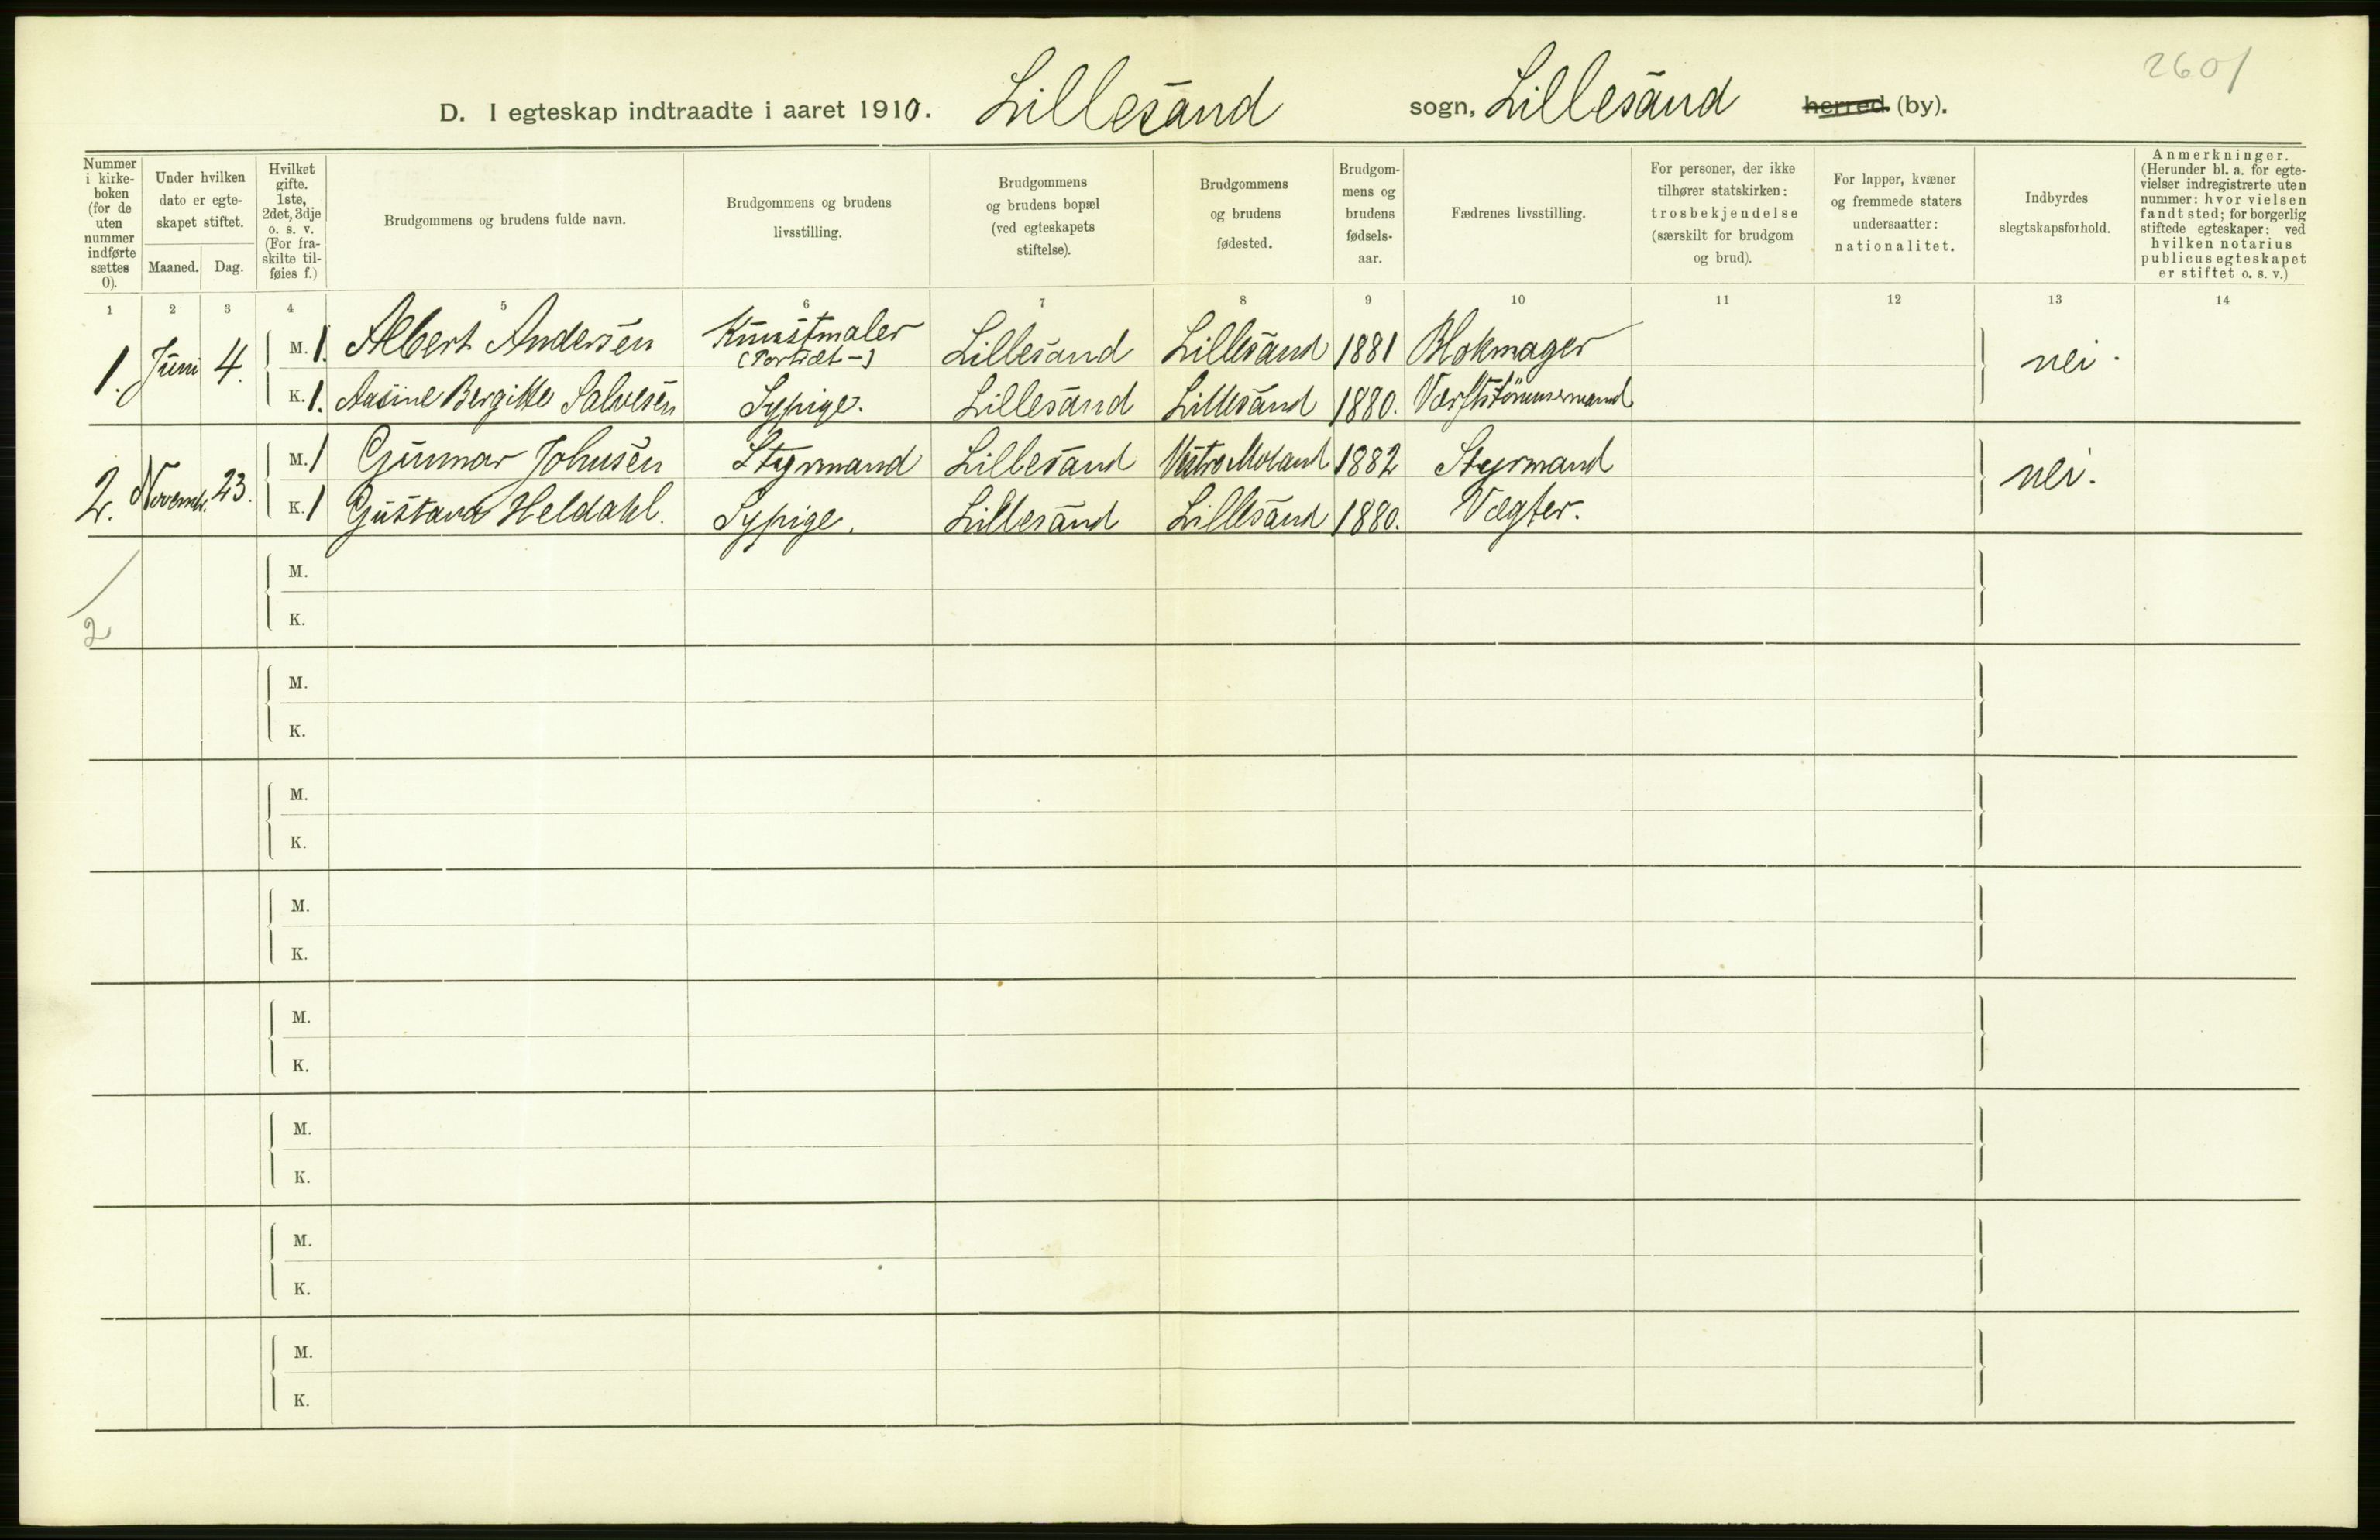 2601
D. I egteskap indtraadte i aaret 1910. Lillesand sogn, Lillesand herred (by).
Nummer i kirkeboken (for de uten nummer indførte sættes 0).
Under hvilken dato er egteskapet stiftet.
Maaned. Dag.
Hvilket gifte. 1ste, 2det, 3dje o. s. v. (For fraskilte tilføies f.)
Brudgommens og brudens fulde navn.
Brudgommens og brudens livsstilling.
Brudgommens og brudens bopæl (ved egteskapets stiftelse).
Brudgommens og brudens fødested.
Brudgommens og brudens fødselsaar.
Fædrenes livsstilling.
For personer, der ikke tilhører statskirken: trosbekjendelse (særskilt for brudgom og brud).
For lapper, kvæner og fremmede staters undersaatter: nationalitet.
Indbyrdes slegtskapsforhold.
Anmerkninger. (Herunder bl. a. for egtevielser indregistrerte uten nummer: hvor vielsen fandt sted; for borgerlig stiftede egteskaper: ved hvilken notarius publicus egteskapet er stiftet o. s. v.)
1 2 3 4 5 6 7 8 9 10 11 12 13 14
1. Juni 4. M. 1. Albert Andersen Kunstmaler (Portræt-) Lillesand Lillesand 1881 Blokmager nei.
K. 1. Aasine Bergitte Salvesen Sypige. Lillesand Lillesand 1880. Værftstømmermand
2. Novembr. 23. M. 1 Gunnar Johnsen Styrmand Lillesand Vestre Moland 1882 Styrmand nei.
K. 1 Gustava Heldahl. Sypige. Lillesand Lillesand 1880. Vægter.
2
M.
K.
M.
K.
M.
K.
M.
K.
M.
K.
M.
K.
M.
K.
M.
K.